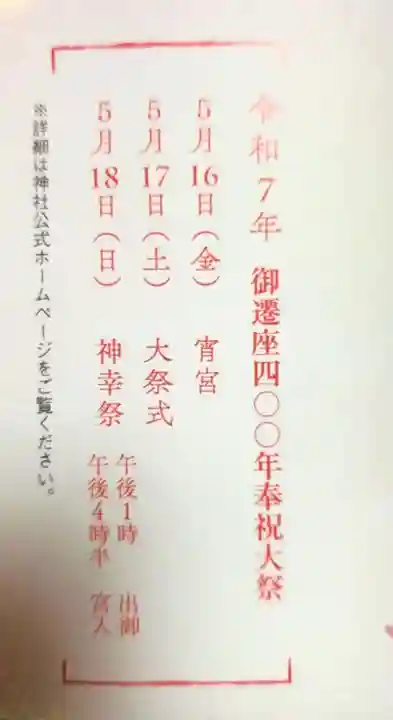 令和7年 御遷座四〇〇年奉祝大祭
5月16日（金） 宵宮
5月17日（土） 大祭式
5月18日（日） 神幸祭
午後1時 出御
午後4時半 宮入
※詳細は神社公式ホームページをご覧ください。